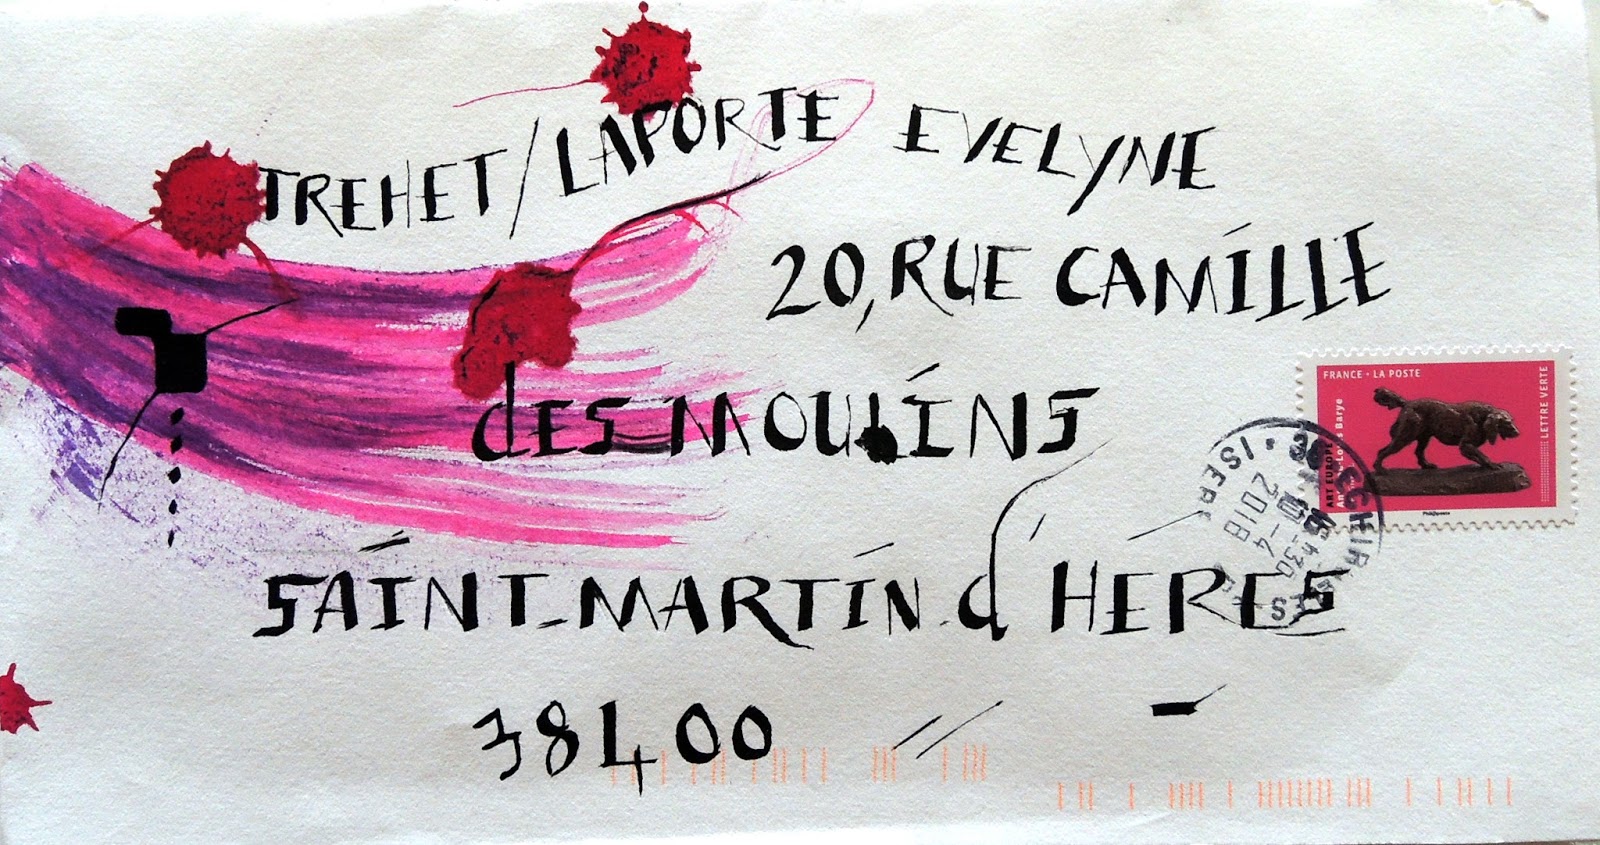 TREHET/LAPORTE EVELYNE
20, RUE CAMILLE
dES MOULINS
SAINT-MARTIN d'HÉRES
38400
FRANCE - LA POSTE
LETTRE VERTE
Philaposte
ISERE
2018